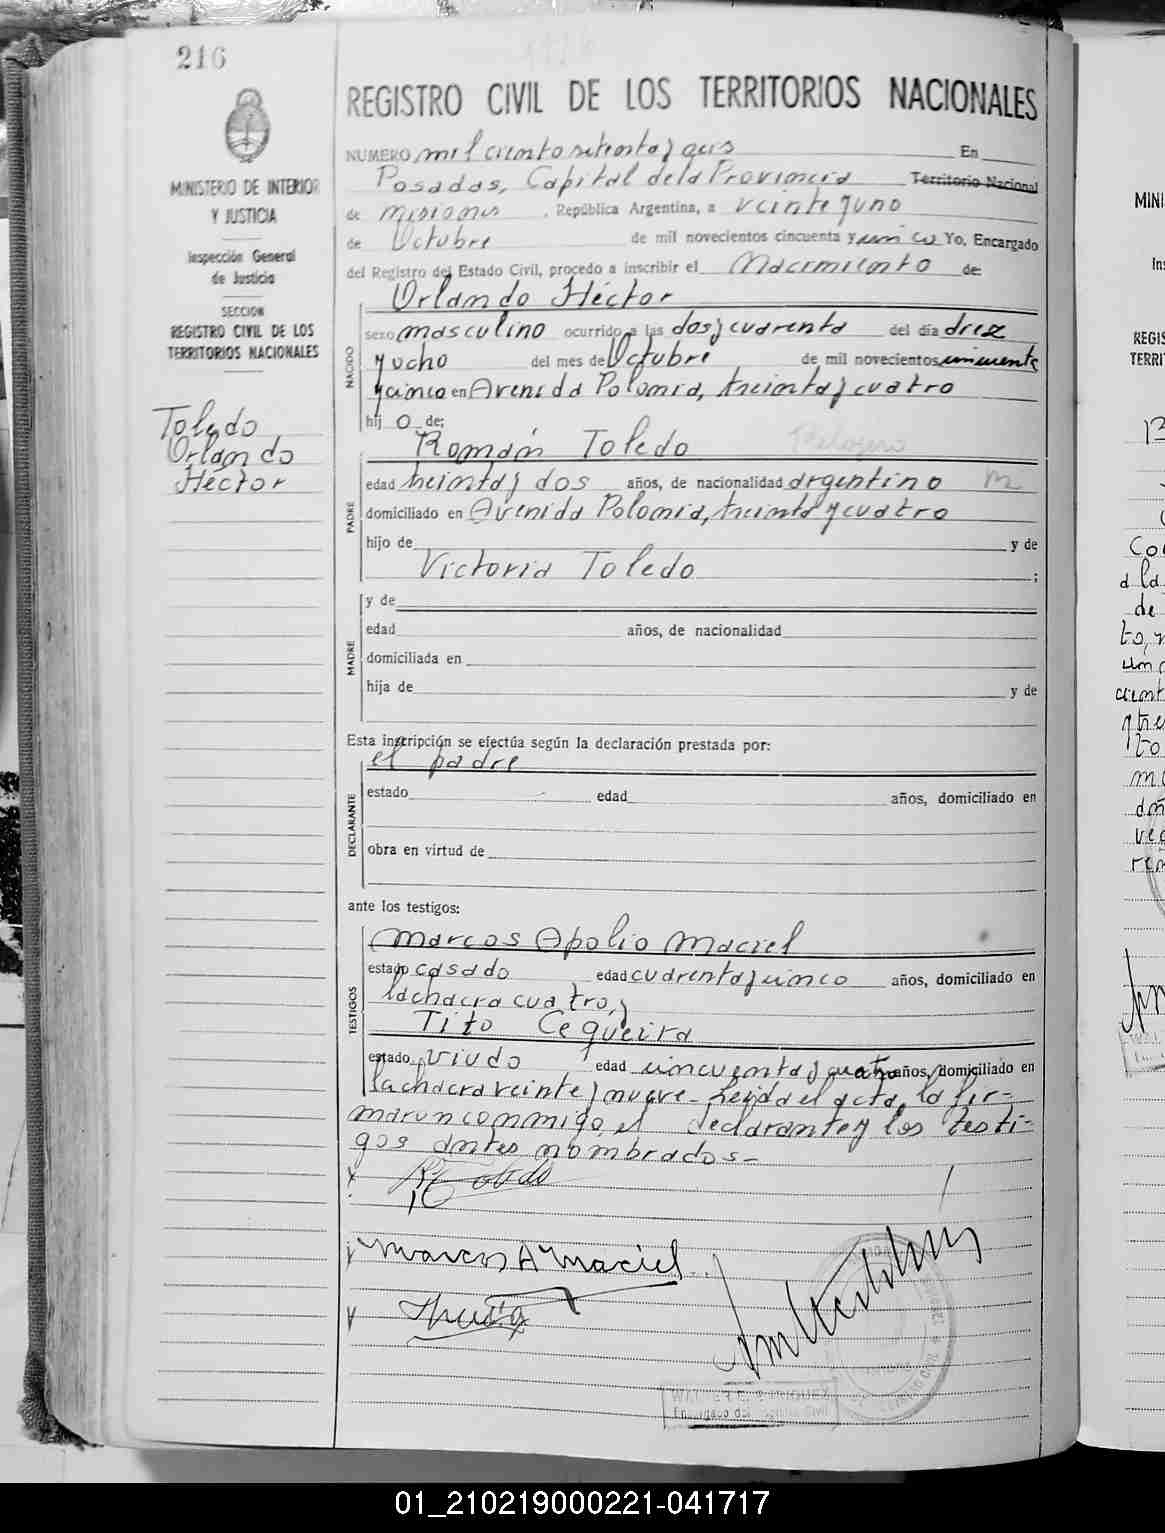 216
REGISTRO CIVIL DE LOS TERRITORIOS NACIONALES
MINISTERIO DE INTERIOR
Y JUSTICIA
Inspección General
de Justicia
SECCION
REGISTRO CIVIL DE LOS
TERRITORIOS NACIONALES
Toledo
Orlando
Héctor
NUMERO mil ciento setenta y seis En
Posadas, Capital de la Provincia Territorio Nacional
de Misiones, República Argentina, a veinte y uno
de Octubre de mil novecientos cincuenta y cinco Yo, Encargado
del Registro del Estado Civil, procedo a inscribir el Nacimiento de:
NACIDO
Orlando Héctor
sexo masculino ocurrido a las dos y cuarenta del día diez
y ocho del mes de Octubre de mil novecientos cincuenta
y cinco en Avenida Polonia, treinta y cuatro
hij o de;
PADRE
Román Toledo
edad treinta y dos años, de nacionalidad argentino
domiciliado en Avenida Polonia, treinta y cuatro
hijo de y de
Victoria Toledo ;
MADRE
y de
edad años, de nacionalidad
domiciliada en
hija de y de
Esta inscripción se efectúa según la declaración prestada por:
DECLARANTE
el padre
estado edad años, domiciliado en
obra en virtud de
ante los testigos:
TESTIGOS
Marcos Apolio Maciel
estado casado edad cuarenta y cinco años, domiciliado en
la chacra cuatro, y
Tito Cequeira
estado viudo edad cincuenta y cuatro años, domiciliado en
la chacra veinte y nueve - Leída el acta, la fir-
maron conmigo, el declarante y los testi-
gos antes nombrados-
Marcos A Maciel
Encargado del Registro Civil
01_210219000221-041717